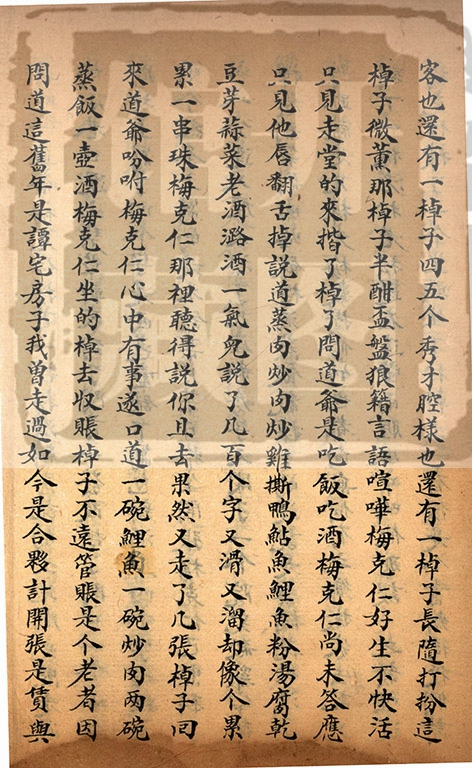 客也還有一棹子四五个秀才腔樣也還有一棹子長隨打扮這
棹子微薰那棹子半酣盃盤狼籍言語喧嘩梅克仁好生不快活
只見走堂的來揩了棹了問道爺是吃飯吃酒梅克仁尚未答應
只見他唇翻舌掉説道蒸肉炒肉炒雞撕鴨鮎魚鯉魚粉湯腐乾
豆芽蒜菜老酒潞酒一氣皃説了几百个字又滑又溜却像个累
累一串珠梅克仁那裡聽得説你且去果然又走了几張棹子囘
來道爺吩咐梅克仁心中有事遂口道一碗鯉魚一碗炒肉两碗
蒸飯一壺酒梅克仁坐的棹去収賬棹子不遠管賬是个老者因
問道這舊年是譚宅房子我曾走過如今是合夥計開張是賃與